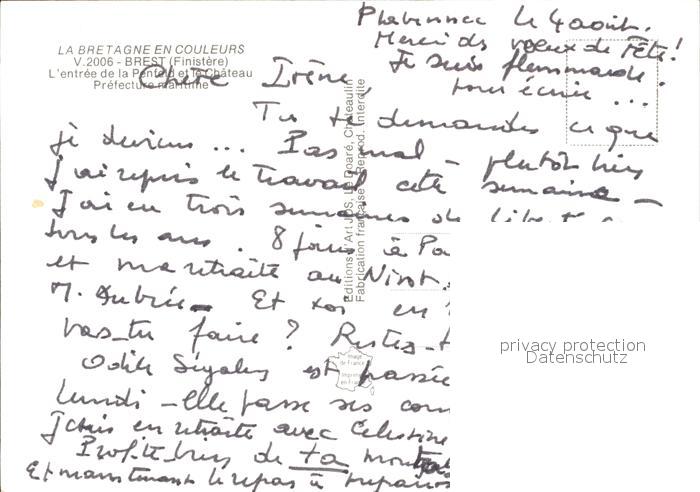 Plabennec le 4 août.
Merci ds voeux de Fête!
Je suis flemmarde
pour écrire...
LA BRETAGNE EN COULEURS
V.2006 - BREST (Finistère)
L'entrée de la Penfeld et le Château
Préfecture maritime
Chère Irène,
Tu te demandes ce que
je deviens ... Pas mal - plutôt bien
J'ai repris le travail cette semaine -
J'ai eu trois semaines de liberté
tous les ans. 8 jours à Pa
et ma retraite au Nivot.
M. Aubrée - Et toi en
vas-tu faire? Restez-t
Odile est passée
lundi - elle passe ses con
J'étais en retraite avec Celestine
Profite bien de ta
Et maintenant le repas à
Editions d'Art JOS, Le Doaré, Châteaulin
Fabrication française - Reprod. Interdite
Image de France
Imprimé en France
privacy protection
Datenschutz